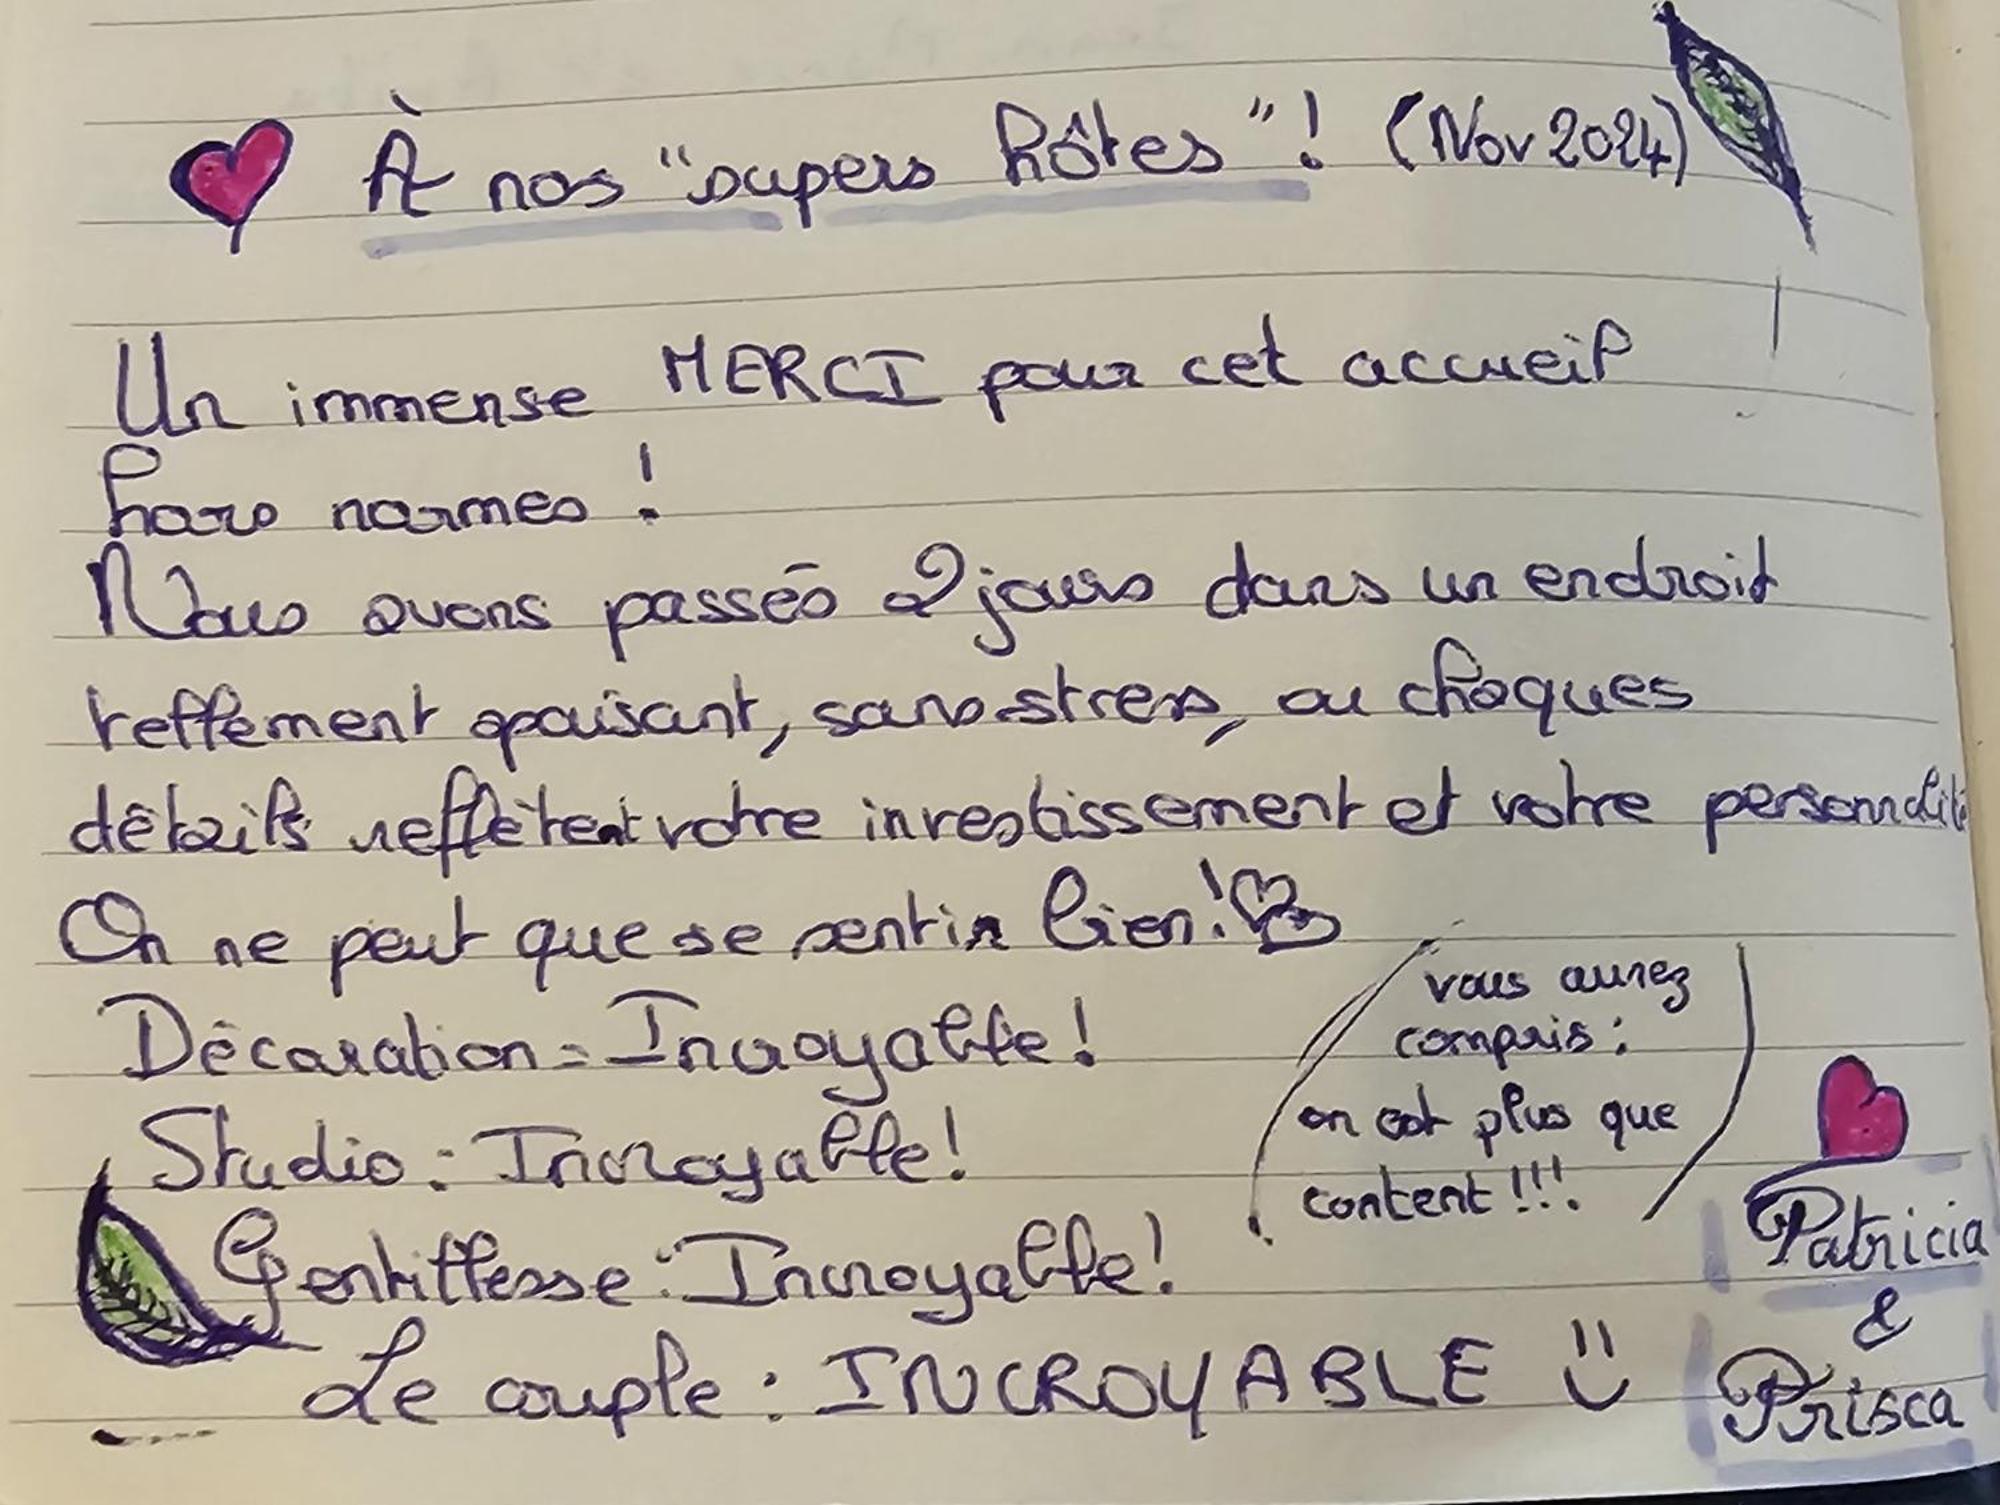 À nos "supers hôtes"! (Nov 2024)
Un immense MERCI pour cet accueil
hors normes !
Nous avons passés 2 jours dans un endroit
tellement apaisant, sans stress, ou choques
détails reflètent votre investissement et votre personnalité
On ne peut que se sentir bien!
Décoration = Incroyable!
Studio : Incroyable!
Gentillesse : Incroyable!
Le couple : INCROYABLE
vous aurez
compris :
on est plus que
content !!!.
Patricia
&
Prisca